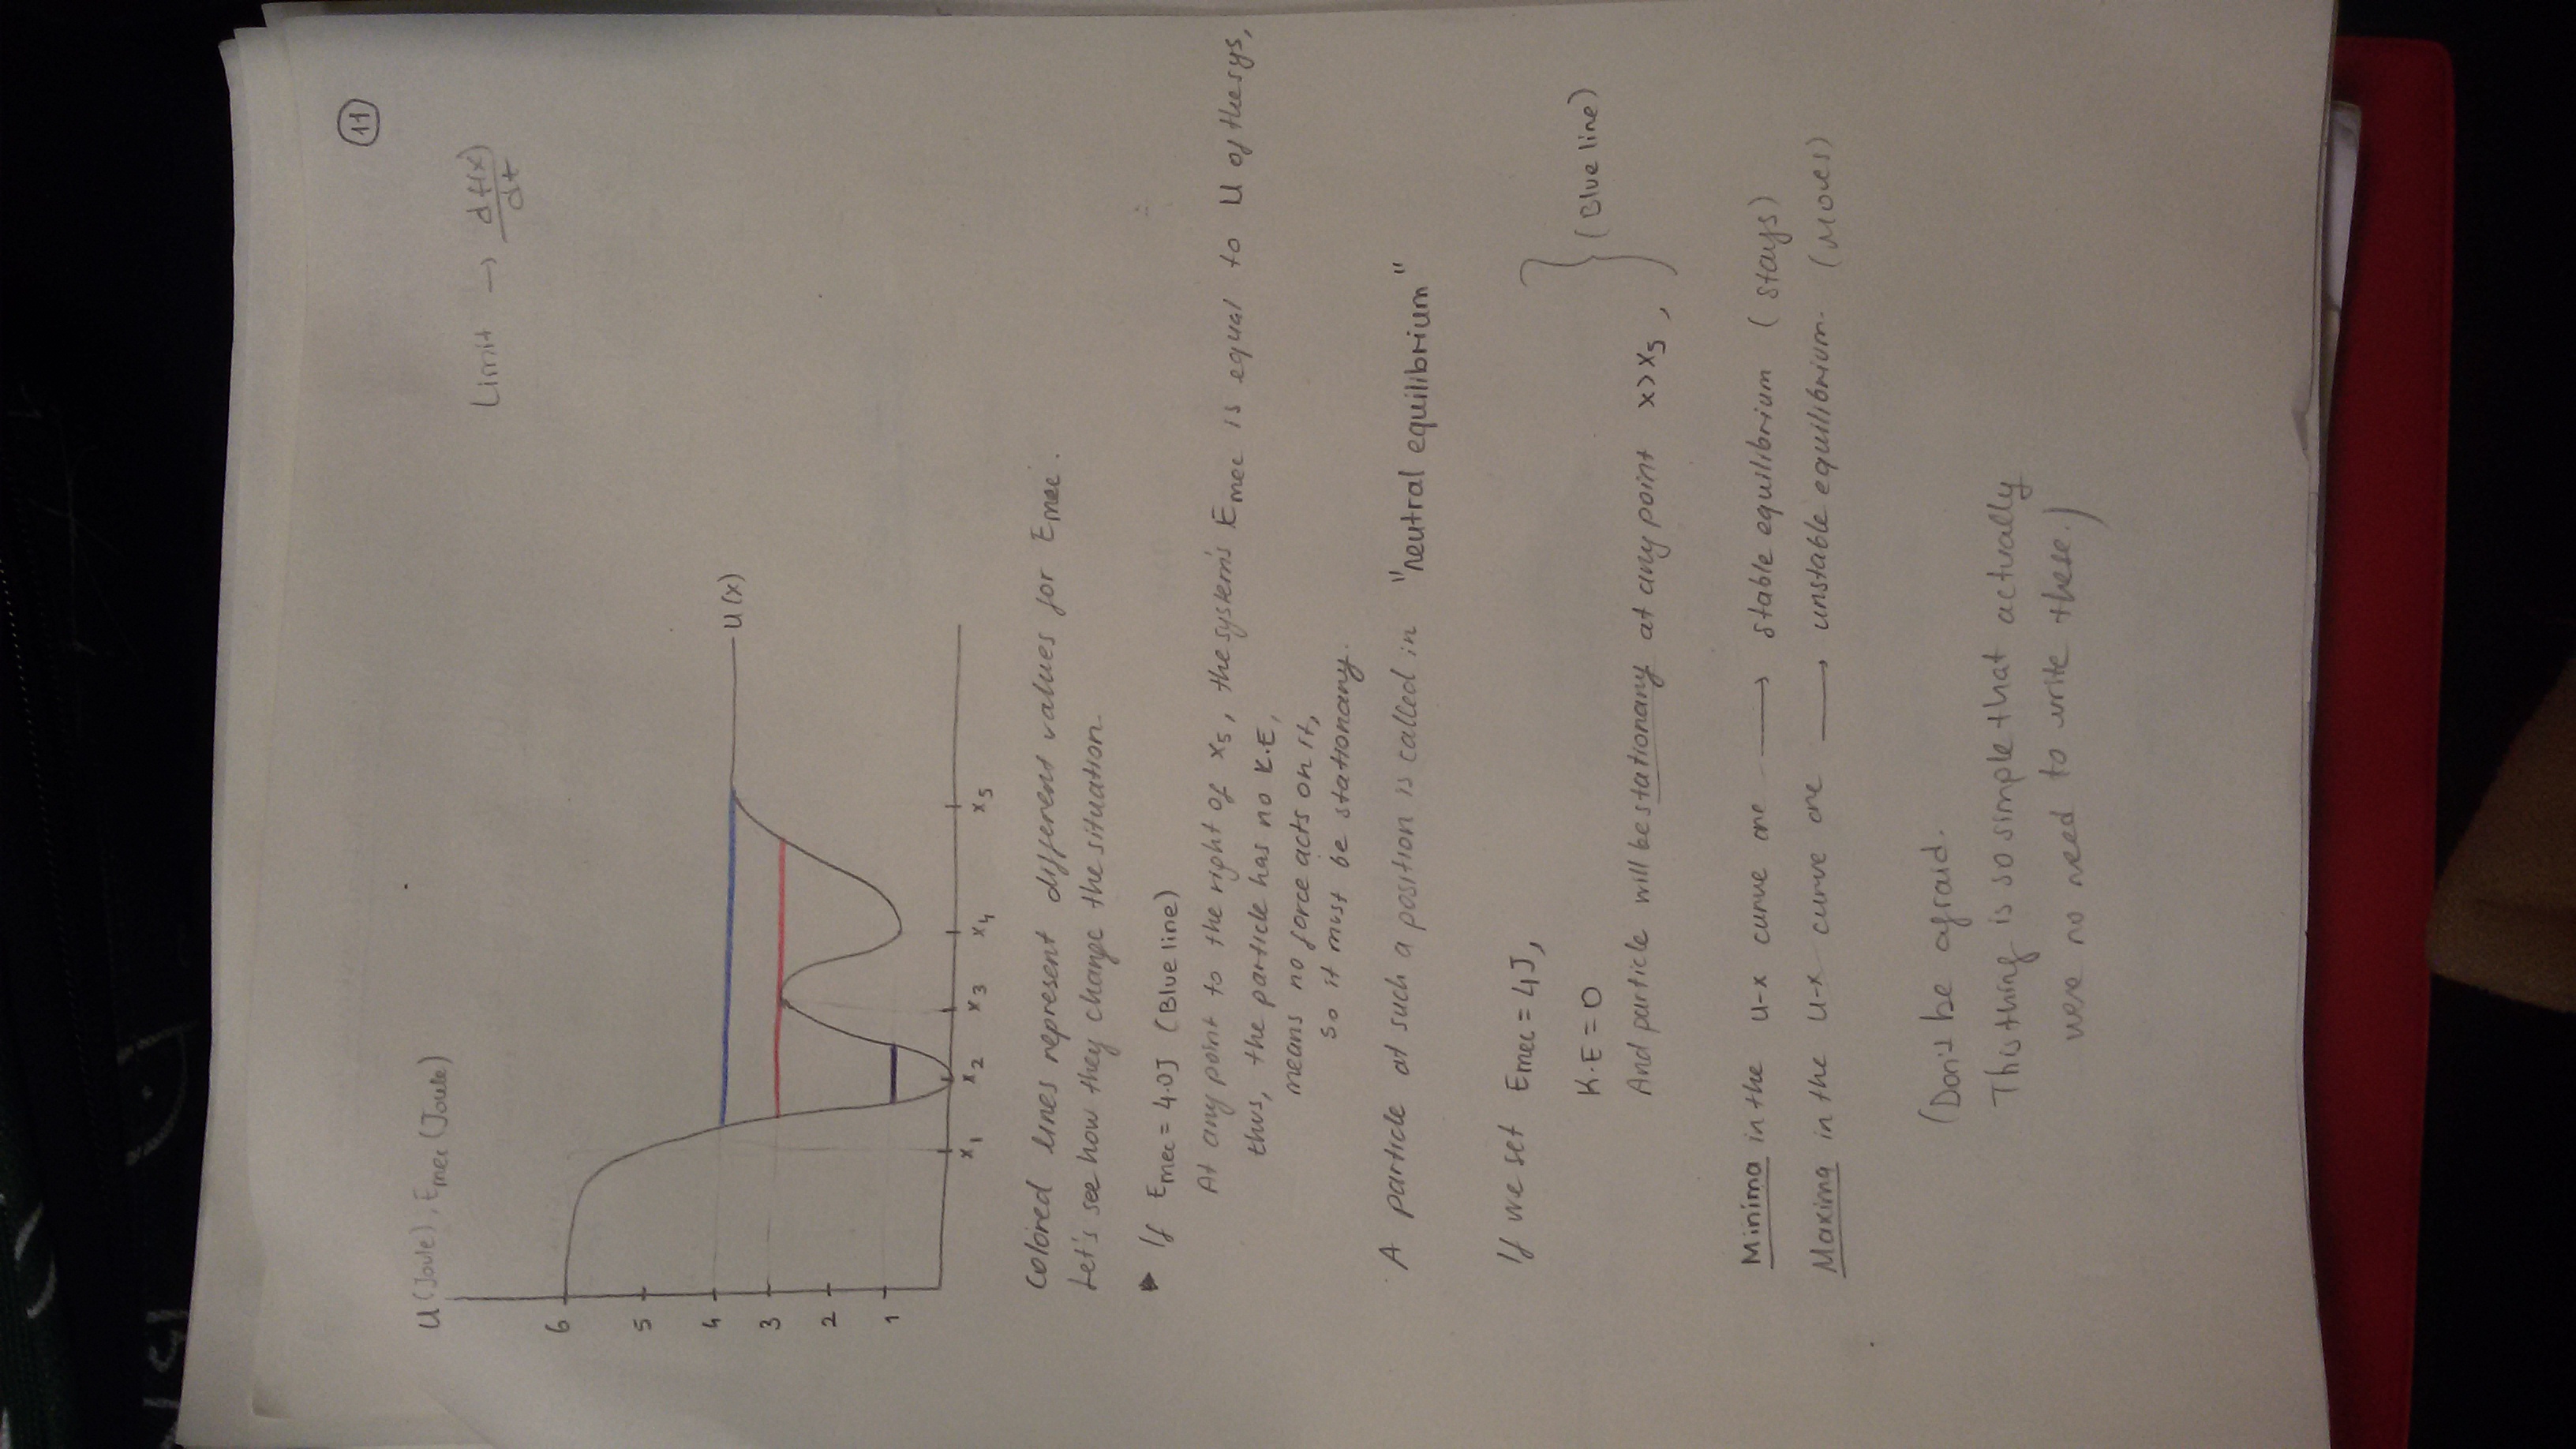 11
U (Joule), Emec (Joule)
Limit → df(x)/dt
6
5
4
3
2
1
U(x)
x1 x2 x3 x4 x5
Colored lines represent different values for Emec.
Let's see how they change the situation.
If Emec = 4.0J (Blue line)
At any point to the right of x5, the system's Emec is equal to U of the sys,
thus, the particle has no K.E,
means no force acts on it,
so it must be stationary.
A particle at such a position is called in "neutral equilibrium"
If we set Emec = 4J,
K.E = 0
And particle will be stationary at any point x>x5,
(Blue line)
Minima in the U-x curve are → stable equilibrium (stays)
Maxima in the U-x curve are → unstable equilibrium. (Moves)
(Don't be afraid.
This thing is so simple that actually
were no need to write these.)